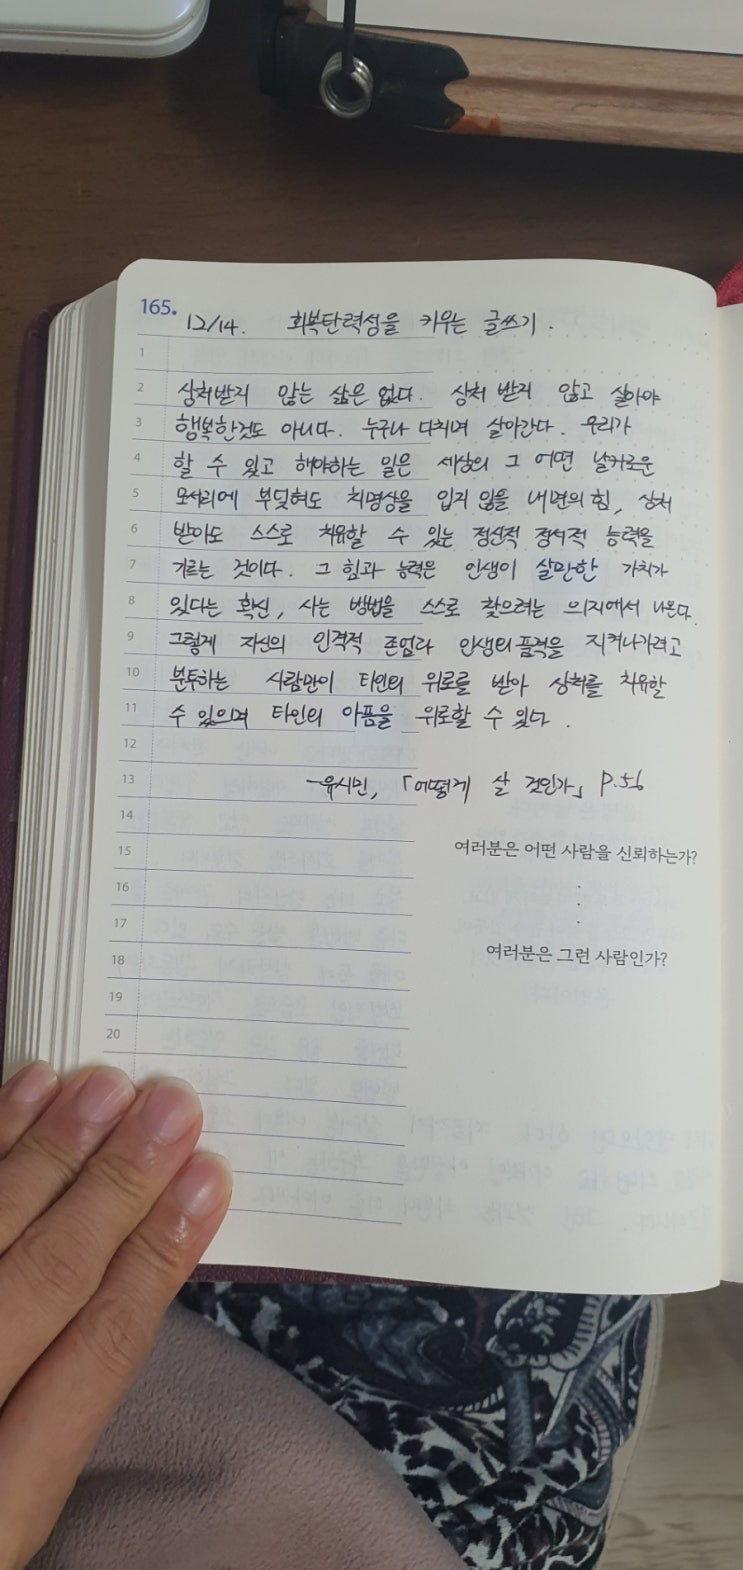 165.
12/14. 회복탄력성을 키우는 글쓰기.
1
2 상처받지 않는 삶은 없다. 상처 받지 않고 살아야
3 행복한것도 아니다. 누구나 다치며 살아간다. 우리가
4 할 수 있고 해야하는 일은 세상의 그 어떤 날카로운
5 모서리에 부딪혀도 치명상을 입지 않을 내면의 힘, 상처
6 받아도 스스로 치유할 수 있는 정신적 정서적 능력을
7 기르는 것이다. 그 힘과 능력은 인생이 살만한 가치가
8 있다는 확신, 사는 방법을 스스로 찾으려는 의지에서 나온다.
9 그렇게 자신의 인격적 존엄과 인생의 품격을 지켜나가려고
10 분투하는 사람만이 타인의 위로를 받아 상처를 치유할
11 수 있으며 타인의 아픔을 위로할 수 있다.
12
13 -유시민, 「어떻게 살 것인가」 P.56
14
15 여러분은 어떤 사람을 신뢰하는가?
16
17
18 여러분은 그런 사람인가?
19
20